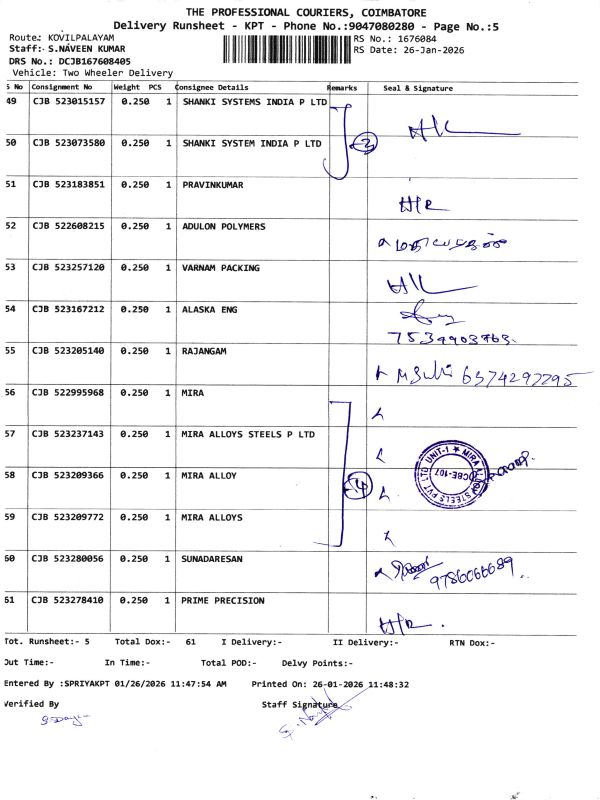 THE PROFESSIONAL COURIERS, COIMBATORE
Delivery Runsheet - KPT - Phone No.:9047080280 - Page No.:5
Route: KOVILPALAYAM
RS No.: 1676084
Staff:- S.NAVEEN KUMAR
RS Date: 26-Jan-2026
DRS No.: DCJB167608405
Vehicle: Two Wheeler Delivery
S No Consignment No Weight PCS Consignee Details Remarks Seal & Signature
49 CJB 523015157 0.250 1 SHANKI SYSTEMS INDIA P LTD
50 CJB 523073580 0.250 1 SHANKI SYSTEM INDIA P LTD
51 CJB 523183851 0.250 1 PRAVINKUMAR
52 CJB 522608215 0.250 1 ADULON POLYMERS
53 CJB 523257120 0.250 1 VARNAM PACKING
54 CJB 523167212 0.250 1 ALASKA ENG
55 CJB 523205140 0.250 1 RAJANGAM 6374297295
56 CJB 522995968 0.250 1 MIRA
57 CJB 523237143 0.250 1 MIRA ALLOYS STEELS P LTD
58 CJB 523209366 0.250 1 MIRA ALLOY
59 CJB 523209772 0.250 1 MIRA ALLOYS
60 CJB 523280056 0.250 1 SUNADARESAN 9786066689
61 CJB 523278410 0.250 1 PRIME PRECISION
Tot. Runsheet:- 5 Total Dox:- 61 I Delivery:- II Delivery:- RTN Dox:-
Out Time:- In Time:- Total POD:- Delvy Points:-
Entered By :SPRIYAKPT 01/26/2026 11:47:54 AM Printed On: 26-01-2026 11:48:32
Verified By Staff Signature